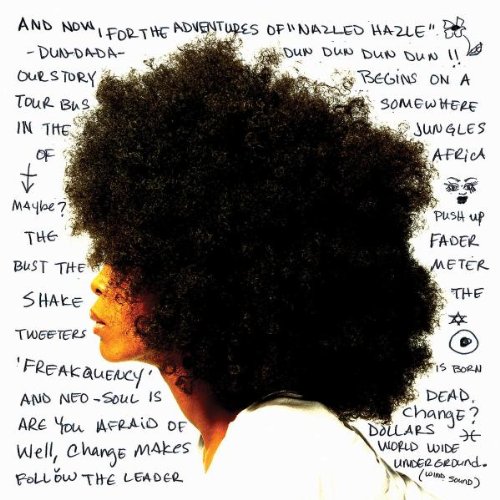 AND NOW, FOR THE ADVENTURES OF "NAZLED HAZLE"
-DUN-DADA- DUN DUN DUN DUN !!
OUR STORY BEGINS ON A
TOUR BUS SOMEWHERE
IN THE JUNGLES
OF AFRICA
MAYBE? PUSH UP
THE FADER
BUST THE METER
SHAKE THE
TWEETERS
'FREAKQUENCY' IS BORN
AND NEO-SOUL IS DEAD.
ARE YOU AFRAID OF Change?
Well, CHANGE MAKES DOLLARS
WORLD WIDE
FOLLOW THE LEADER UNDERGROUND.
(WIND SOUND)